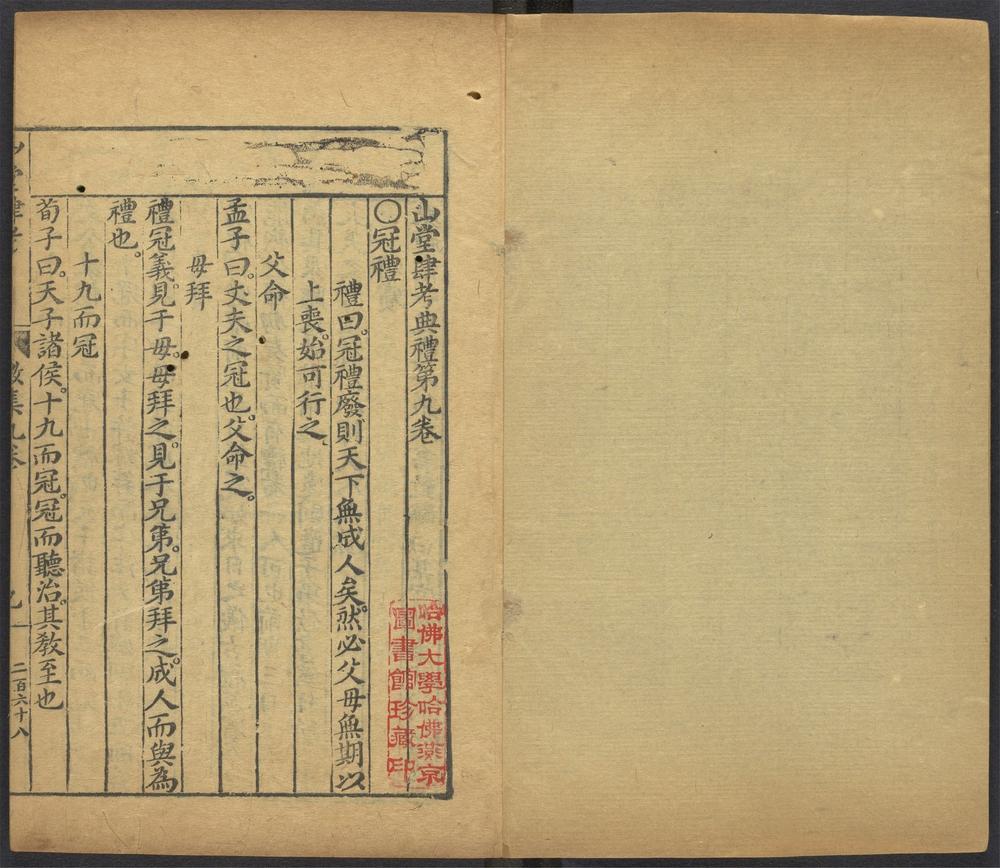 山堂肆考典禮第九卷
〇冠禮
禮曰。冠禮廢則天下無成人矣。然必父母無期以
上喪。始可行之。
父命
孟子曰。丈夫之冠也。父命之。
母拜
禮冠義見于母。母拜之。見于兄弟。兄弟拜之。成人而與為
禮也。
十九而冠
荀子曰。天子諸侯。十九而冠。冠而聽治。其教至也
二百六十八
哈佛大學哈佛燕京
圖書館珍藏印